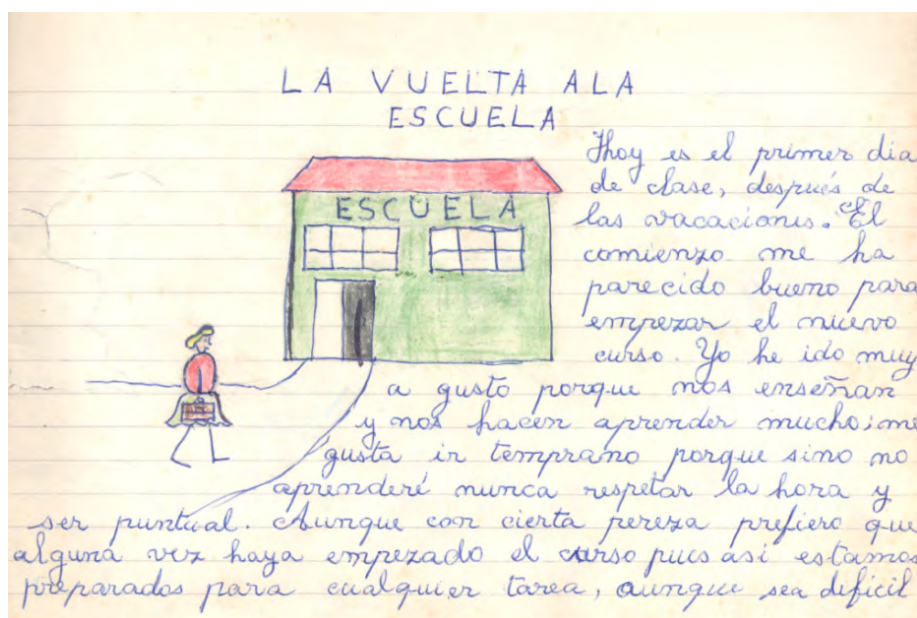 LA VUELTA ALA
ESCUELA
Hoy es el primer dia
de clase, después de
las vacaciones. El
ESCUELA
comienzo me ha
parecido bueno para
empezar el nuevo
curso. Yo he ido muy
a gusto porque nos enseñan
y nos hacen aprender mucho; me
gusta ir temprano porque sino no
aprenderé nunca respetar la hora y
ser puntual. Aunque con cierta pereza prefiero que
alguna vez haya empezado el curso pues asi estamos
preparados para cualquier tarea, aunque sea dificil